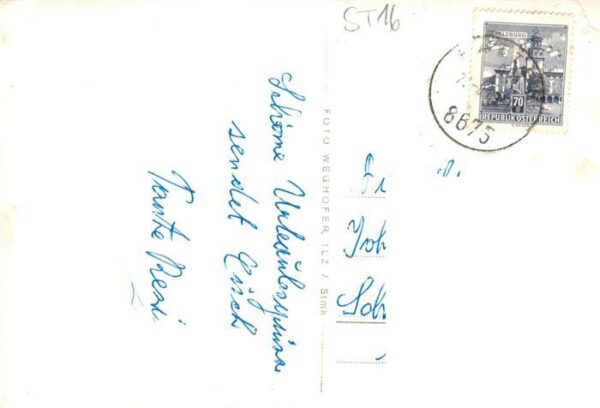 ST16
SALZBURG
70
REPUBLIK ÖSTERREICH
8675
Schöne Urlaubsgrüsse
sendet Euch
Tante Resi
FOTO WEGHOFER, ILZ / Stmk